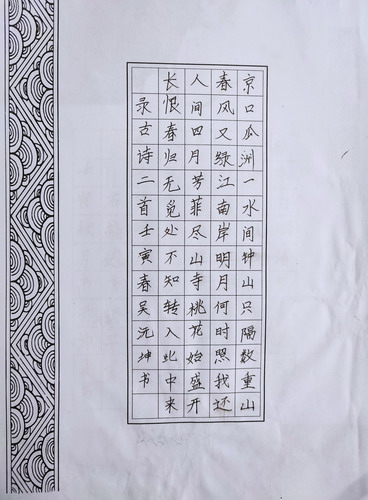 京口瓜洲一水间钟山只隔数重山
春风又绿江南岸明月何时照我还
人间四月芳菲尽山寺桃花始盛开
长恨春归无觅处不知转入此中来
录古诗二首壬寅春吴沅坤书